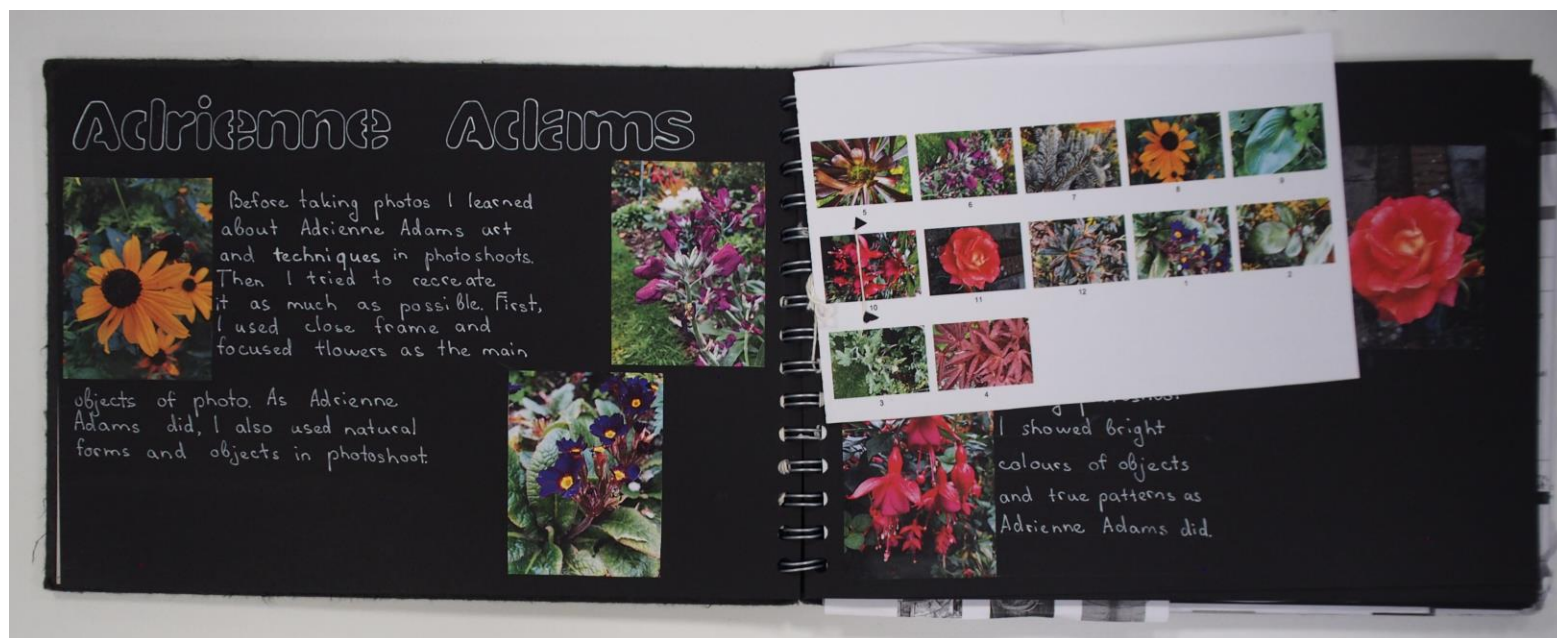 Adrienne Adams
Before taking photos I learned
about Adrienne Adams art
and techniques in photoshoots.
Then I tried to recreate
it as much as possible. First,
I used close frame and
focused flowers as the main
objects of photo. As Adrienne
Adams did, I also used natural
forms and objects in photoshoot.
5 6 7 8 9
10 11 12 1 2
3 4
I showed bright
colours of objects
and true patterns as
Adrienne Adams did.